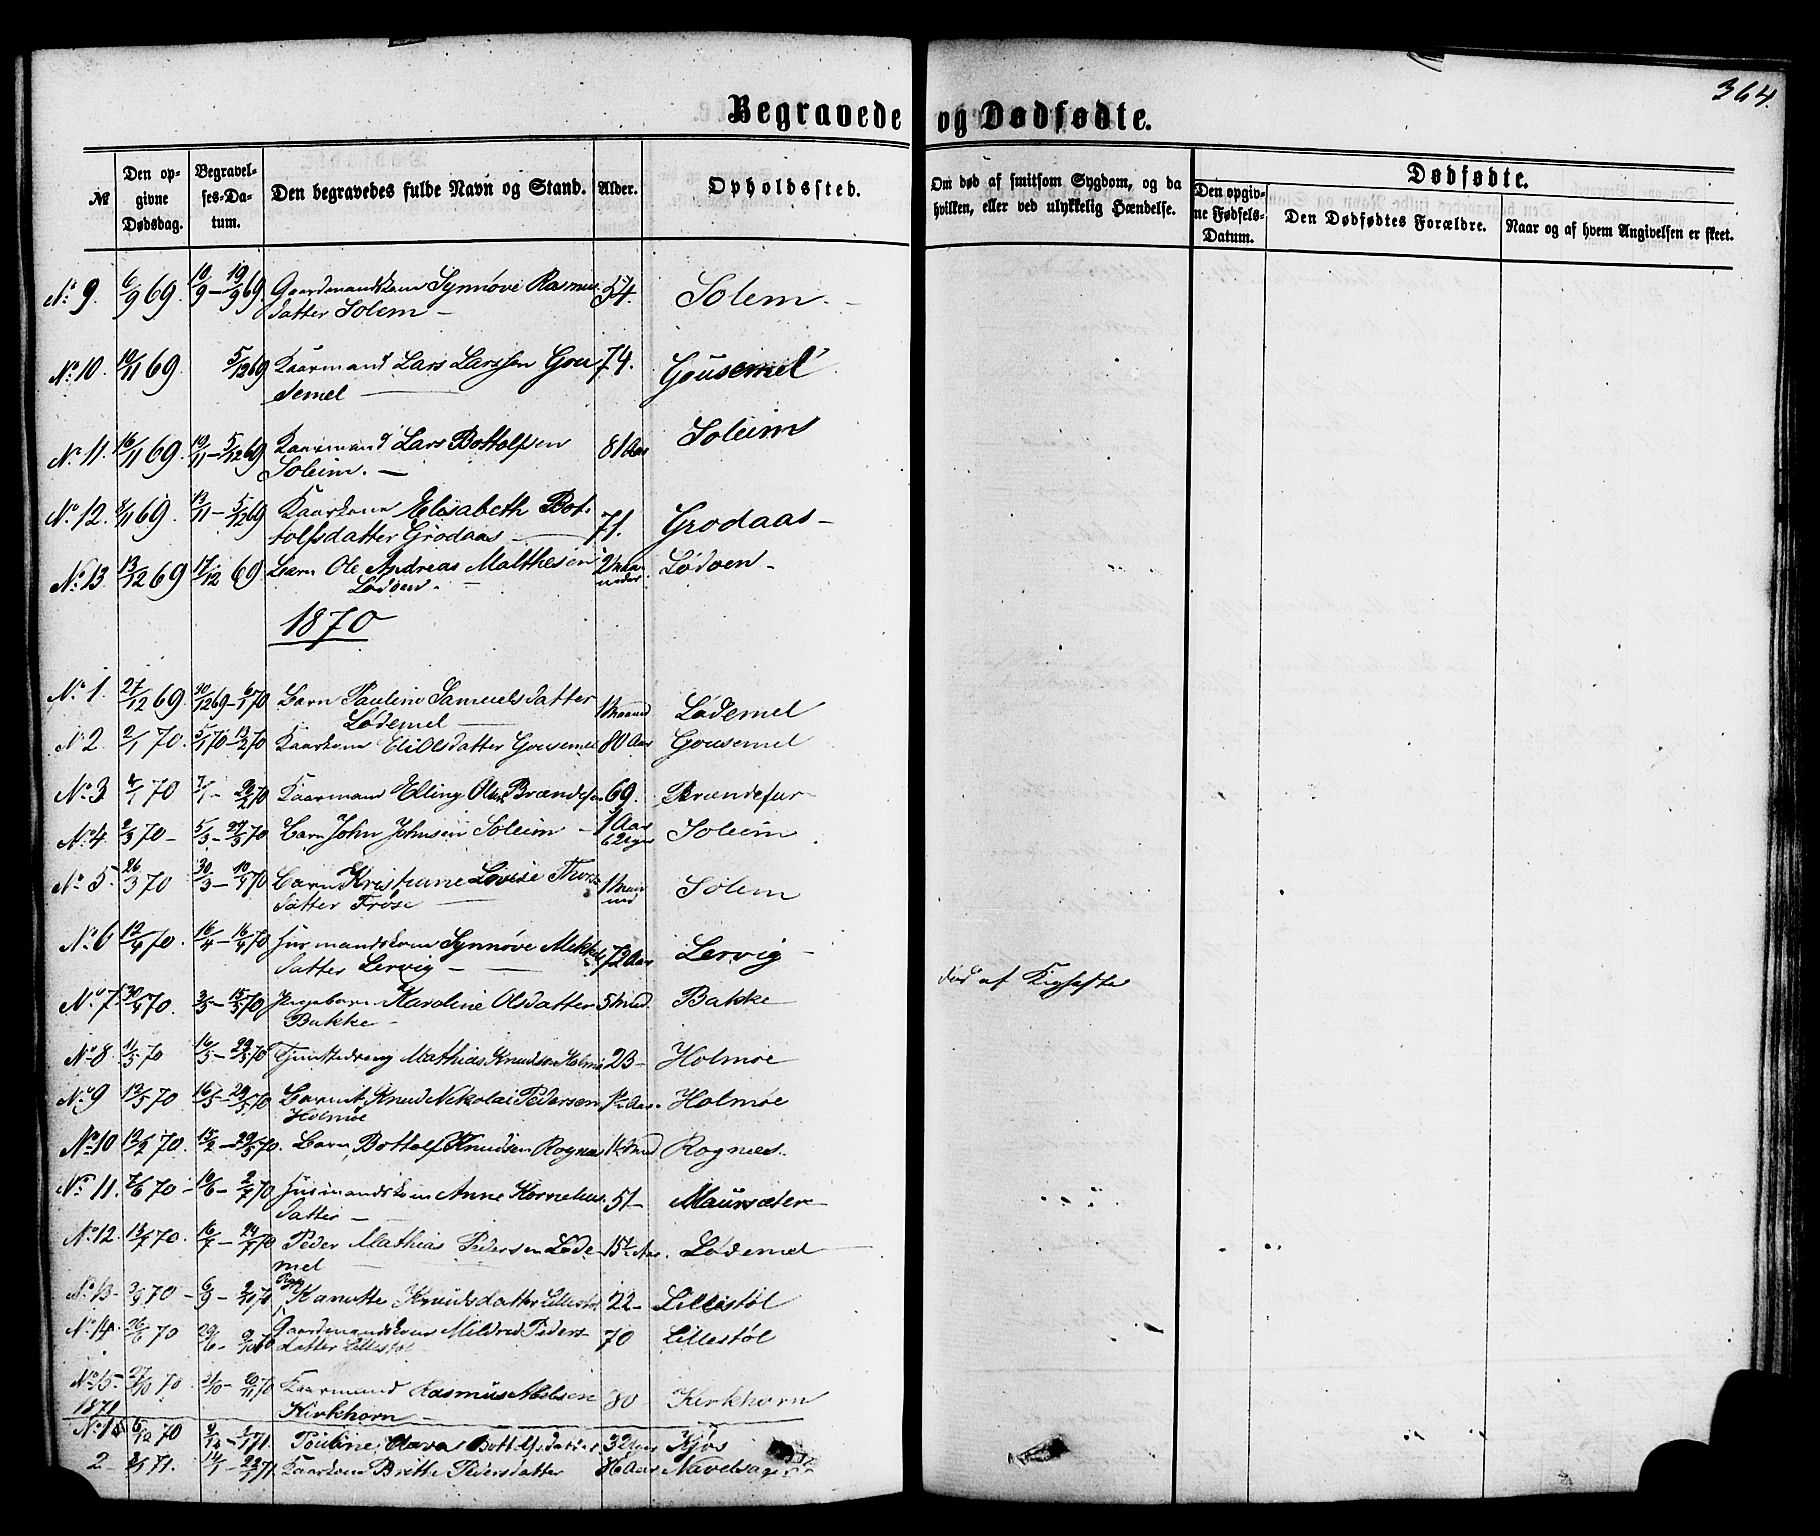 364.
Begravede og Dødfødte.
№
Den opgivne Dødsdag.
Begravelses-Datum.
Den begravedes fulde Navn og Stand.
Alder.
Opholdssted.
Om død af smitsom Sygdom, og da hvilken, eller ved ulykkelig Hændelse.
Dødfødte.
Den opgivne Fødsels-Datum.
Den Dødfødtes Forældre.
Naar og af hvem Angivelsen er skeet.
No 9. 6/9 69. 10/9 – 19/9 69. Gaardmandskone Synnøve Rasmus- 54. Solem. –
datter Solem –
No 10. 19/11 69 5/12 69 Kaarmand Lars Larssen Gou- 74. Gousemel
semel
No 11. 16/11 69 19/11 – 5/12 69 Kaarmand Lars Bottolfsen 81 Aar Soleim
Soleim. –
No 12. 9/11 69. 13/11 – 5/12 69 Kaarkone Elisabeth Bot- 71. Grodaas –
tolfsdatter Grodaas –
No 13. 13/12 69 17/12 69 Barn Ole Andreas Malthesen 2 Maa- Lødøen –
Lødøen – neder
1870
No 1. 27/12 69 30/12 69 – 6/1 70 Barn Pauline Samuelsdatter 1 Maaned Lødemel
Lødemel
No 2. 2/1 70. 5/1 70 – 13/2 70 Kaarkone Eli Olsdatter Gousemel 80 Aar Gousemel
No 3 4/1 70 7/1 – 2/2 70 Kaarmand Elling Olsen Brændefur 69. Brændefur
No 4. 2/3 70 – 5/3 – 27/3 70 Barn John Johnsen Soleim – 1 Aar Soleim
6 Uger
No 5. 26/3 70 30/3 – 10/4 70 Barn Kristiane Lovise Thors- 1 Maa- Solem
datter Frøse ned
No 6 12/4 70. 16/4 – 16/4 70 Husmandskone Synnøve Mikkels- 72 Aar Lervig –
datter Lervig –
No 7. 30/4 70. 3/5 – 15/5 70 Pigebarn Karoline Olsdatter 5 Mnd. Bakke død af Kighoste
Bakke –
No 8. 11/5 70 16/5 – 29/5 70 Tjenstedreng Mathias Knudsen Holmøe 23 – Holmøe
No 9 12/5 70 16/5 – 29/5 70 Barnet Knud Nikolai Pedersen Aar Holmøe
Holmøe
No 10 12/2 70. 15/2 – 29/5 70. Barn, Bottolf Knudsen Rognes Mnd. Rognees.
No 11. 7/6 70 – 10/6 – 2/7 70 Husmandskone Anne Kornelius- 51 – Maursæter
datter –
No 12. 13/7 70. 16/7 – 24/7 70 Peder Mathias Pedersen Løde- 15 Aar. Lødemel
mel
No 13 – 3/9 70 – 6/9 – 2/10 70 Pige Kanutte Knudsdatter Lillestøl 22 – Lillestøl
No 14. 26/6 70 29/6 – 2/10 70 Gaardmandskone Mildrid Peders- 70 Lillestøl
datter Lillestøl –
No 15 – 27/10 70 2/10 – 20/11 70 Kaarmand Rasmus Nielsen 80 Kirkhorn
Kirkhorn –
1871
No 1 6/12 70 9/12 – 1/1 71. Pouline Olava Bottolfsdatter 3 Uger Kjøs
2 – 8/1 71. 14/1 – 22/1 71. Kaarkone Brithe Pedersdatter 86 Aar Navelsager